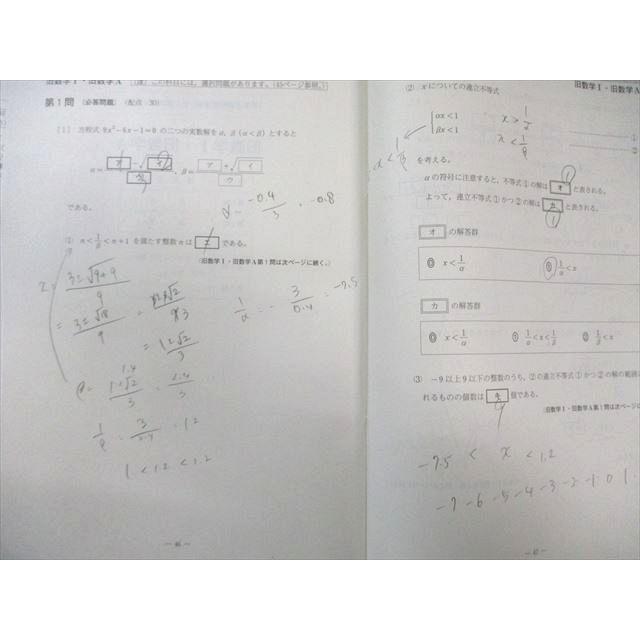 旧数学Ⅰ・旧数学A
第1問 (必答問題) (配点 30)
[1] 方程式 9x²−6x−1=0 の二つの実数解を α, β (α<β) とすると
α= ア −√イ / ウ , β= ア +√イ / ウ
である。
α = −0.4/3
−0.8
① n<1/β<n+1 を満たす整数 n は エ である。
(旧数学Ⅰ・旧数学A第1問は次ページに続く。)
3±√9+9 / 9
= 3±√18 / 9
= 1±√2 / 3
1/α = − 3/0.4 = −7.5
β = 1+√2 / 3
1.4
= 2.4/3
1/β = 3/2.4 = 1.2
1 < 1.2 < 1.2
— 46 —
旧数学Ⅰ・旧数学A
② x についての連立不等式
αx<1
βx<1
x > 1/α
x < 1/β
を考える。
α の符号に注意すると, 不等式①の解は オ と表される。
よって, 連立不等式①かつ②の解は カ と表される。
オ の解答群
⓪ x<1/α
① 1/α<x
カ の解答群
⓪ x<1/α
① 1/α<x<1/β
② 1/β<x
③ −9以上9以下の整数のうち, ②の連立不等式①かつ②の解の範囲
れるものの個数は キ 個である。
(旧数学Ⅰ・旧数学A第1問は次ページに
−7.5 < x < 1.2
−7 −6 −5 −4 −3 −2 −1 0 1
— 47 —